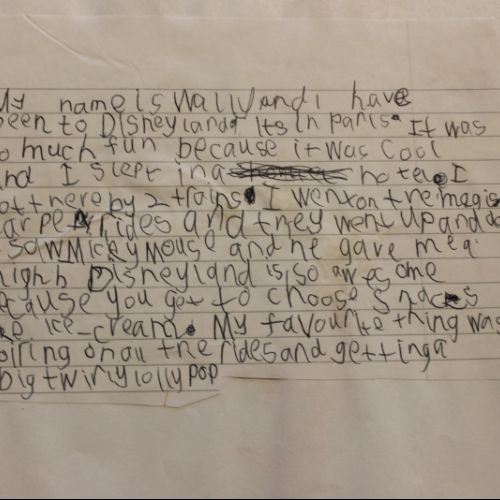 My name is Wally and I have
been to Disneyland. Its in paris. It was
so much fun because it was cool
and I slept in a hotel. I
got there by 2 trains. I went on the magic
carpet rides and they went up and do
I saw Micky mouse and he gave me a
high Disneyland is so awesome
because you get to choose snacks
like ice-cream. My favourite thing was
going on all the rides and getting a
big twirly lolly pop